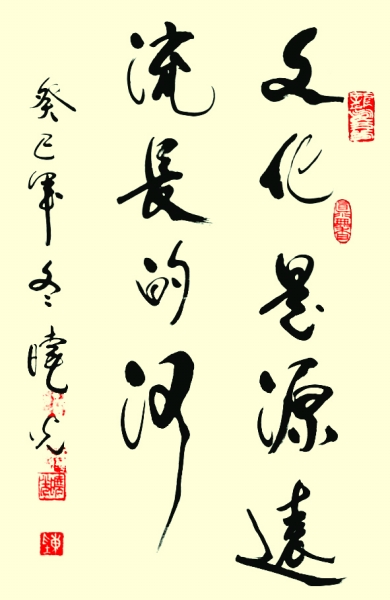 文化是源遠
流長的河
癸巳年冬 曉光